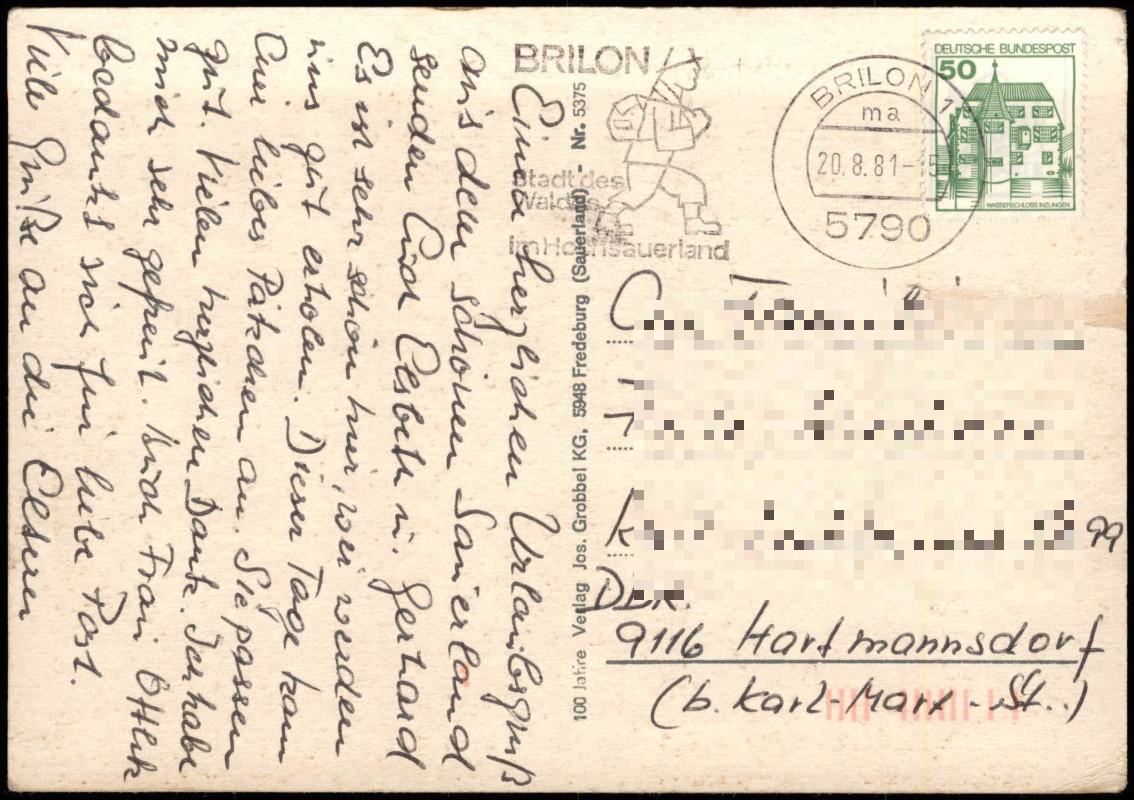 Einen herzlichen Urlaubsgruß
aus dem schönen Sauerland
senden Euch Elsbeth u. Gerhard
Es ist sehr schön hier, wir werden
uns gut erholen. Dieser Tage kam
Euer liebes Pätchen an. Sie passen
gut. Vielen herzlichen Dank. Ich habe
mich sehr gefreut. Auch Frau
bedankt sich für liebe Post.
Viele Grüße an die Eltern
100 Jahre Verlag Jos. Grobbel KG, 5948 Fredeburg (Sauerland) - Nr. 5375
BRILON
Stadt des
Waldes
im Hochsauerland
BRILON 1
ma
20.8.81-15
5790
DEUTSCHE BUNDESPOST
50
WASSERSCHLOSS INZLINGEN
99
DDR.
9116 Hartmannsdorf
(b. Karl-Marx-St..)